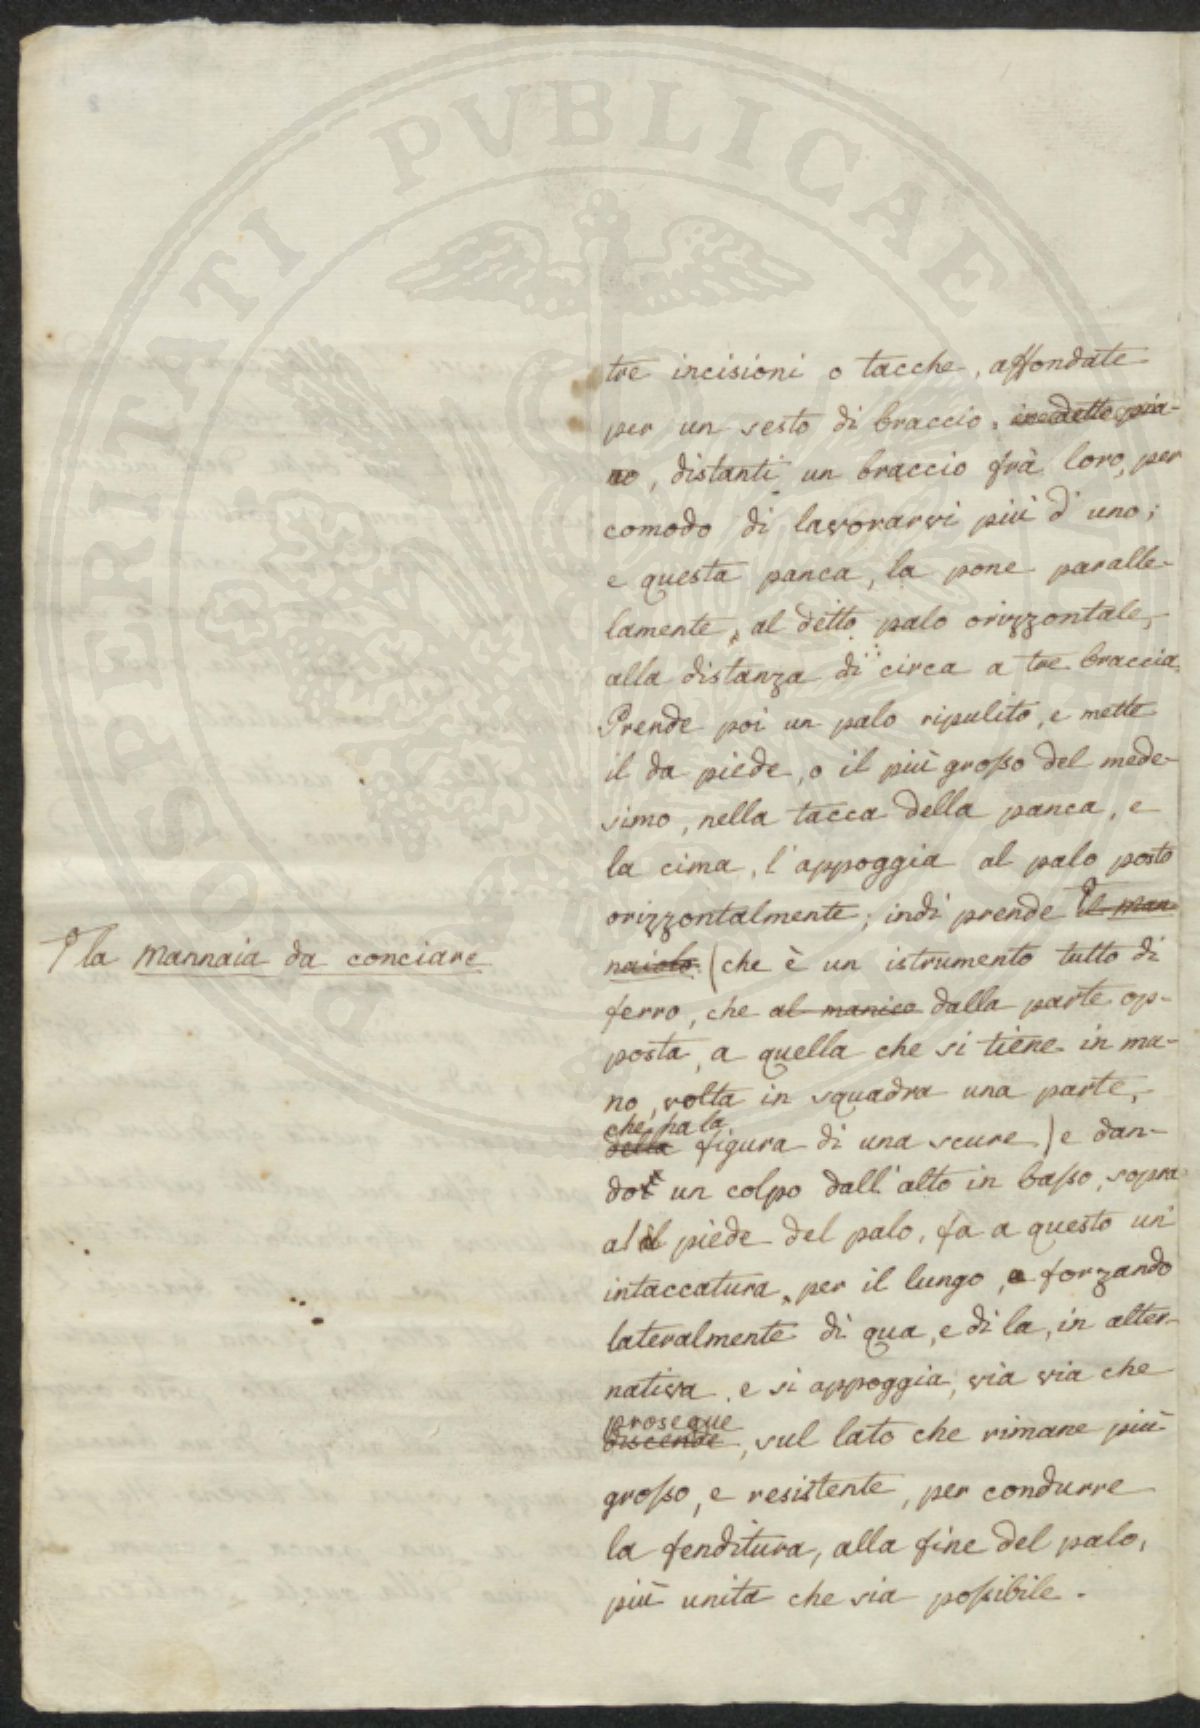 PROSPERITATI PVBLICAE
tre incisioni o tacche, affondate
per un sesto di braccio, in detto pia-
no, distanti un braccio frà loro, per
comodo di lavorarvi più d'uno;
e questa panca, la pone paralle-
lamente, al detto palo orizzontale,
alla distanza di circa a tre braccia.
Prende poi un palo ripulito, e mette
il da piede, o il più grosso del mede-
simo, nella tacca della panca, e
la cima, l'appoggia al palo posto
orizzontalmente; indi prende il man
naiolo (che è un istrumento tutto di
la mannaia da conciare
ferro, che al manico dalla parte op-
posta, a quella che si tiene in ma-
no, volta in squadra una parte,
che ha la
della figura di una scure) e dan-
do un colpo dall'alto in basso, sopra
al piede del palo, fa a questo un'
intaccatura, per il lungo, e forzando
lateralmente di qua, e di la, in alter-
nativa, e si appoggia, via via che
prosegue
discende, sul lato che rimane più
grosso, e resistente, per condurre
la fenditura, alla fine del palo,
più unita che sia possibile.